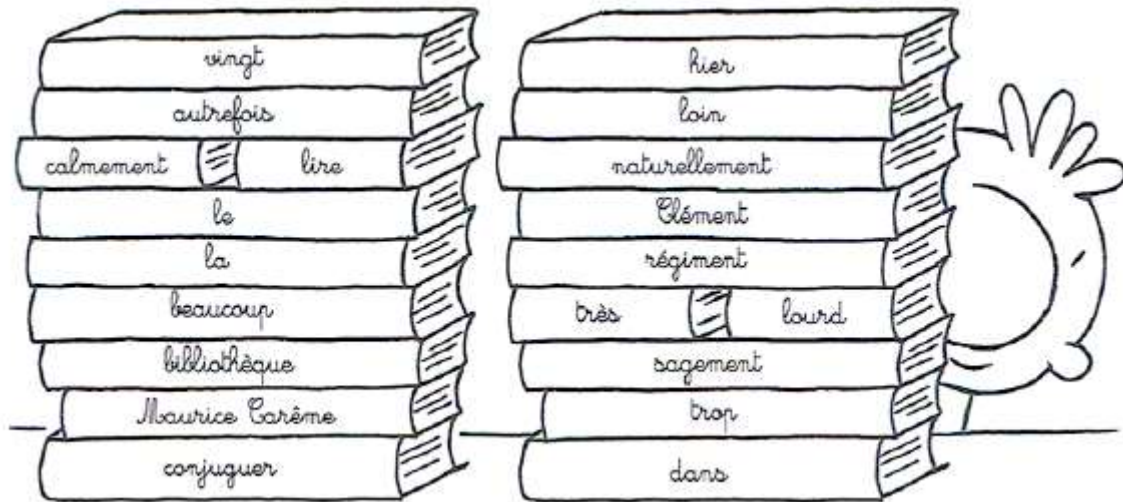 vingt
autrefois
calmement lire
le
la
beaucoup
bibliothèque
Maurice Carême
conjuguer
hier
loin
naturellement
Clément
régiment
très lourd
sagement
trop
dans